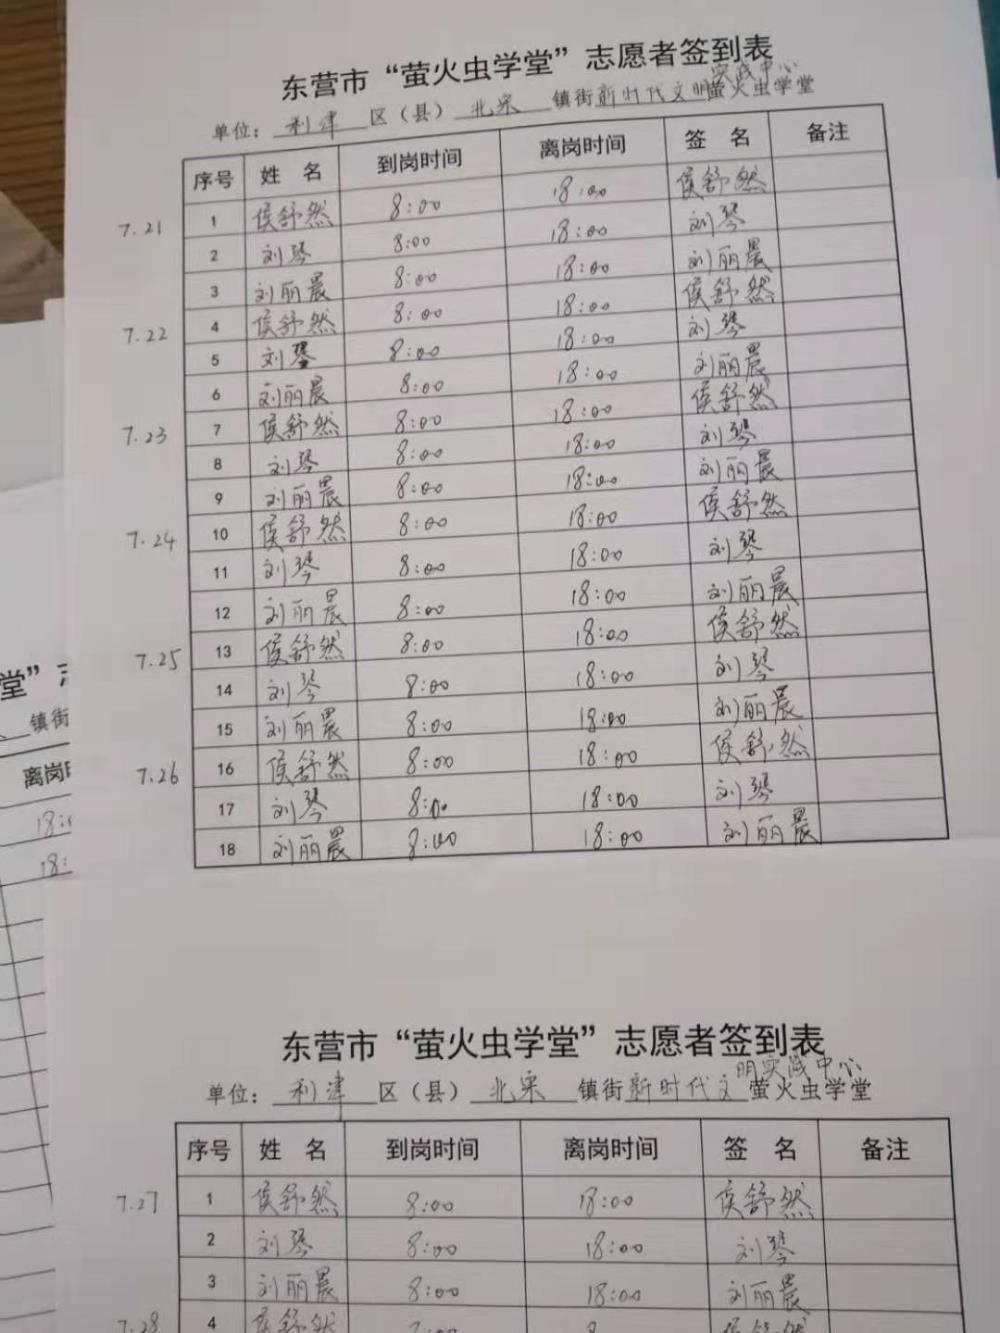 东营市“萤火虫学堂”志愿者签到表
单位：利津区（县）北宋镇街新时代文明实践中心萤火虫学堂
序号 姓 名 到岗时间 离岗时间 签 名 备注
7.21 1 侯舒然 8:00 18:00 侯舒然
2 刘琴 8:00 18:00 刘琴
3 刘丽晨 8:00 18:00 刘丽晨
7.22 4 侯舒然 8:00 18:00 侯舒然
5 刘琴 8:00 18:00 刘琴
6 刘丽晨 8:00 18:00 刘丽晨
7.23 7 侯舒然 8:00 18:00 侯舒然
8 刘琴 8:00 18:00 刘琴
9 刘丽晨 8:00 18:00 刘丽晨
7.24 10 侯舒然 8:00 18:00 侯舒然
11 刘琴 8:00 18:00 刘琴
12 刘丽晨 8:00 18:00 刘丽晨
7.25 13 侯舒然 8:00 18:00 侯舒然
14 刘琴 8:00 18:00 刘琴
15 刘丽晨 8:00 18:00 刘丽晨
7.26 16 侯舒然 8:00 18:00 侯舒然
17 刘琴 8:00 18:00 刘琴
18 刘丽晨 8:00 18:00 刘丽晨
堂”
镇街
离岗时
18:
18:
东营市“萤火虫学堂”志愿者签到表
单位：利津区（县）北宋镇街新时代文明实践中心萤火虫学堂
序号 姓 名 到岗时间 离岗时间 签 名 备注
7.27 1 侯舒然 8:00 18:00 侯舒然
2 刘琴 8:00 18:00 刘琴
3 刘丽晨 8:00 18:00 刘丽晨
7.28 4 侯舒然